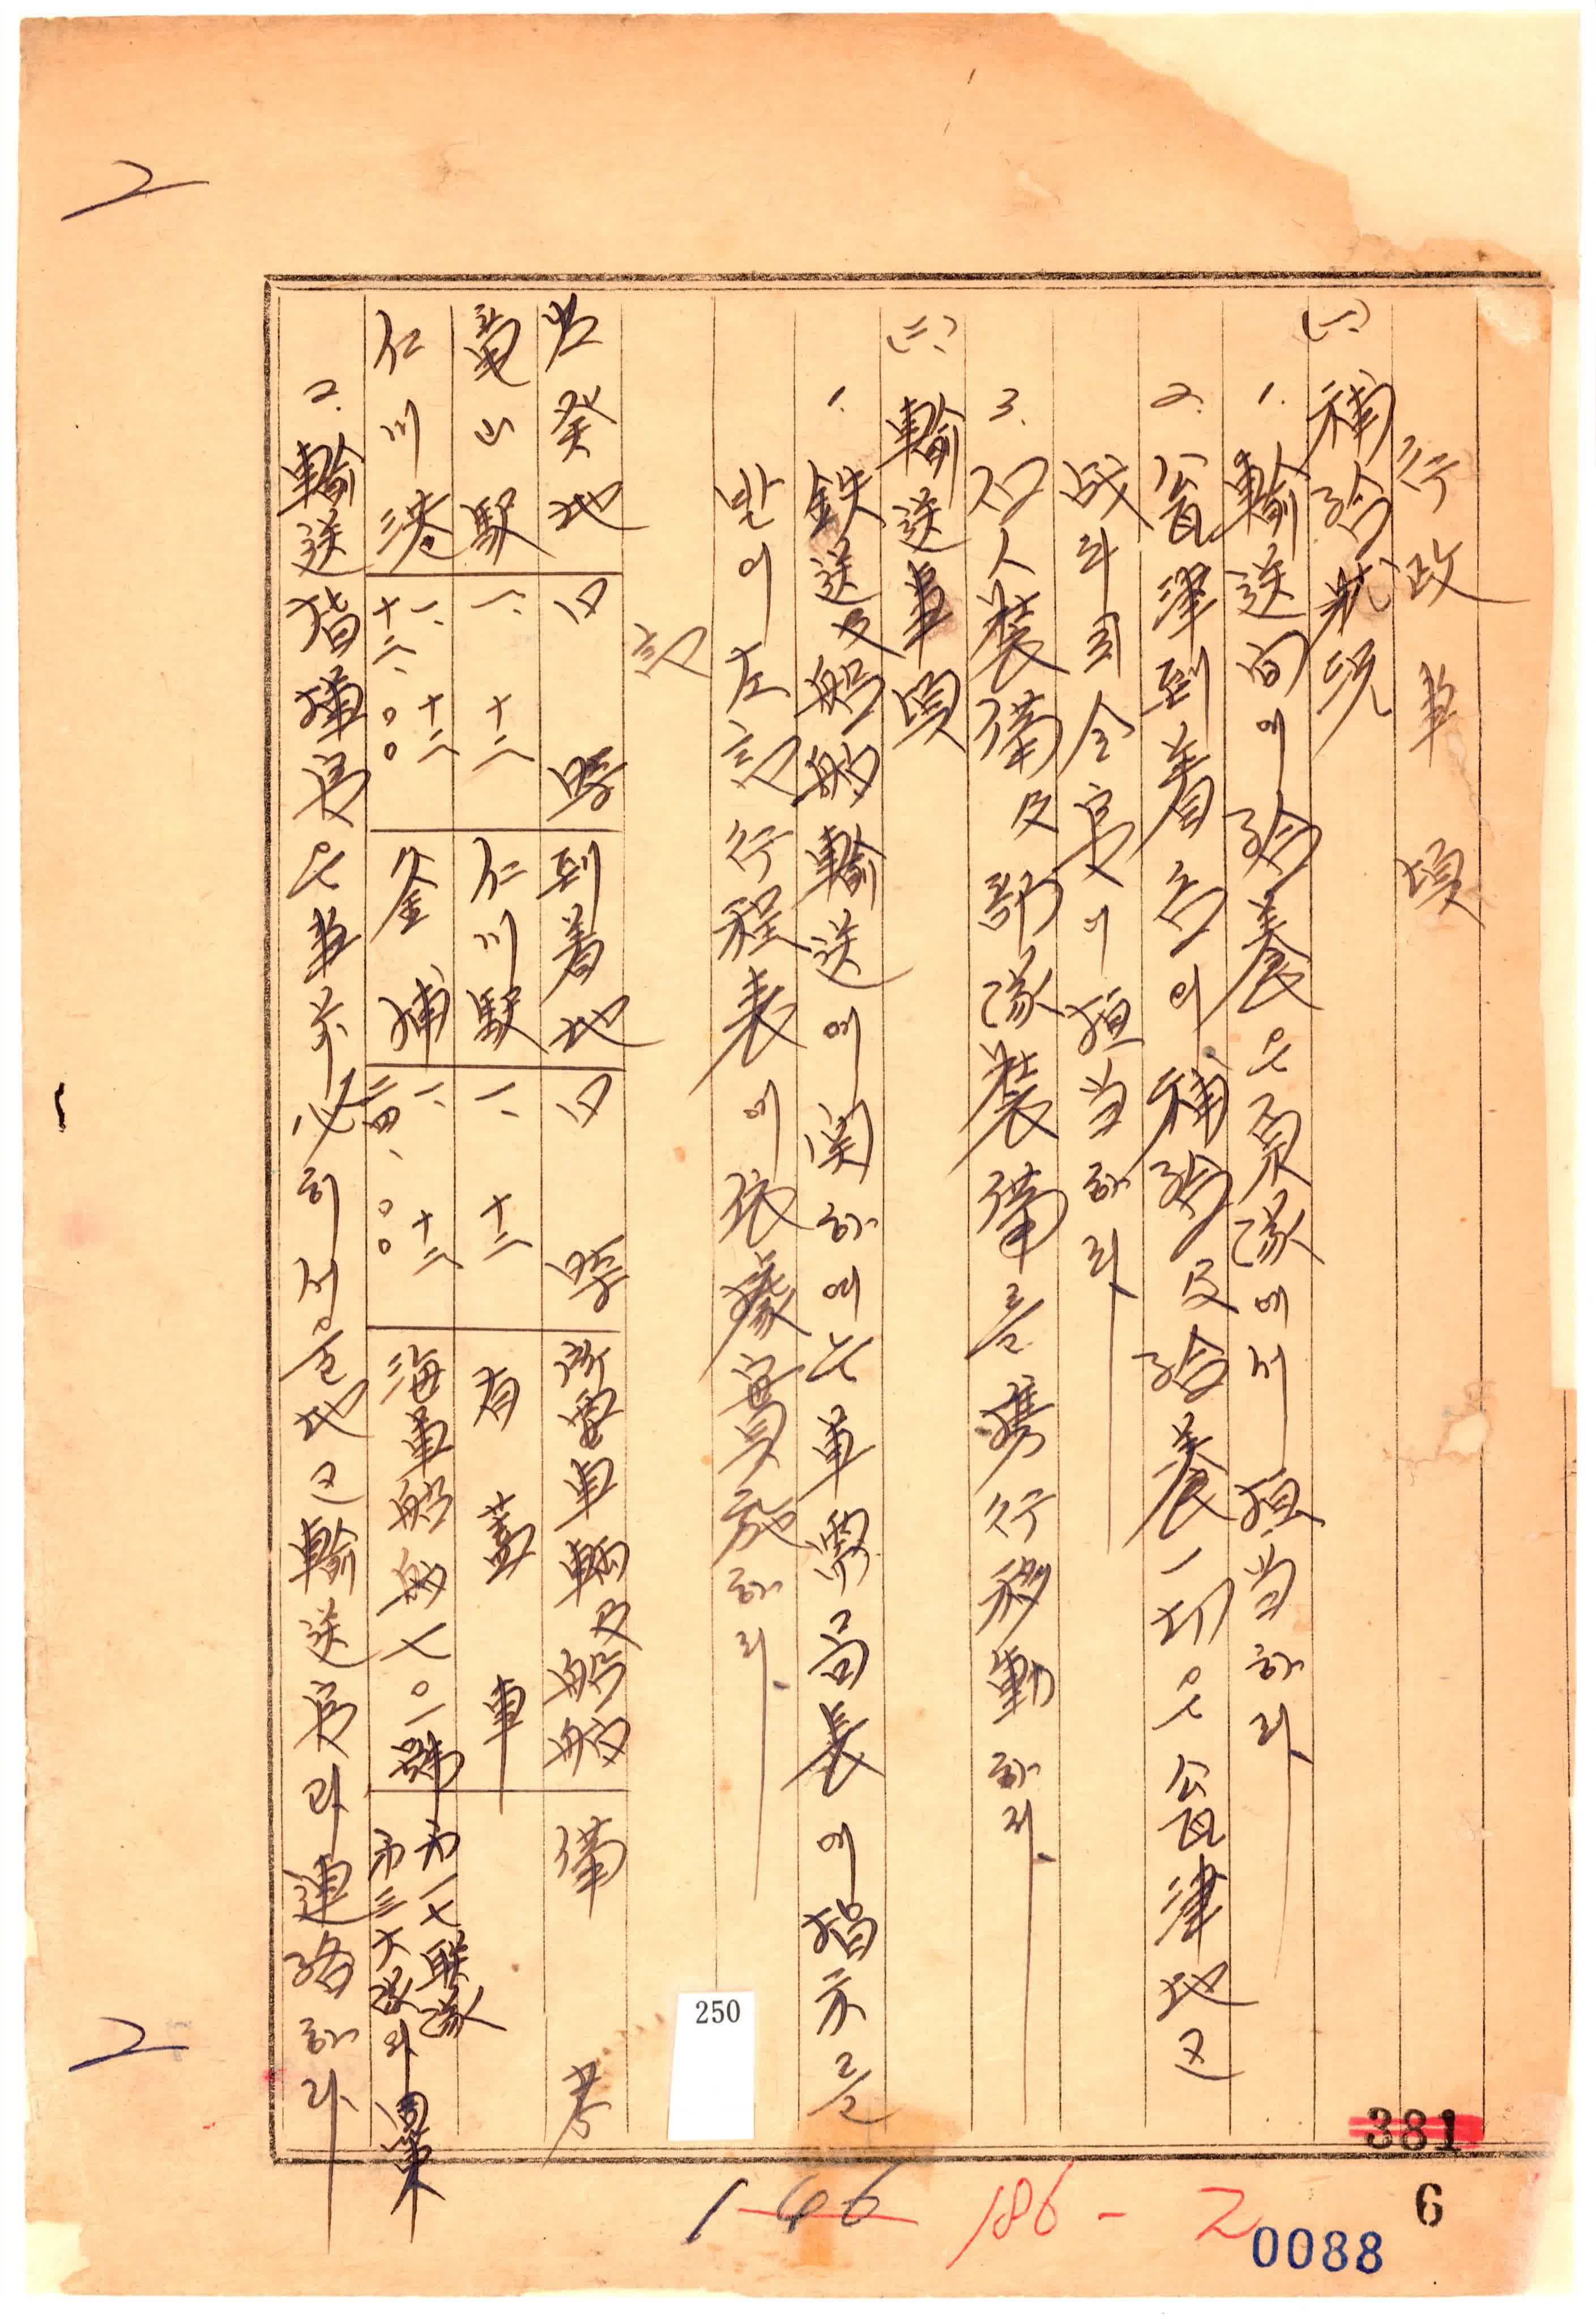 行政事項
(一) 補給狀況
1. 輸送間의 給養은 原隊에서 担当하라
2. 瓮津到着后의 補給及給養一切은 瓮津地区
战斗司令官이 担当하라
3. 個人装備及部隊装備를 携行移動하라.
(二) 輸送事項
1. 鉄送及船舶輸送에 関하여는 車輛局長에 指示를
받어 左記行程表에 依據実施하라.
記
出発地 日時 到着地 日時 所要車輌及船舶 備考
竜山駅 一、十二 仁川駅 一、十二 有蓋車
仁川港 一、十二 十二、〇〇 釜浦 一、十二 二四、〇〇 海軍船舶七〇一號 第一七聯隊 第三大隊와 同乗
2. 輸送指揮官은 事前 必히 서울地区輸送官과 連絡하라.
250
381
6
0088
146
186-2
2
2